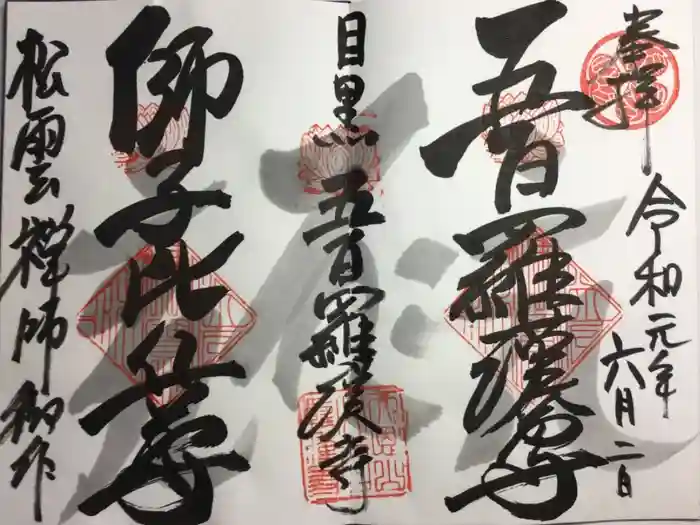 奉拝
令和元年
六月二日
五百羅漢尊
目黒
五百羅漢寺
師子比丘尊
松雲禅師御作